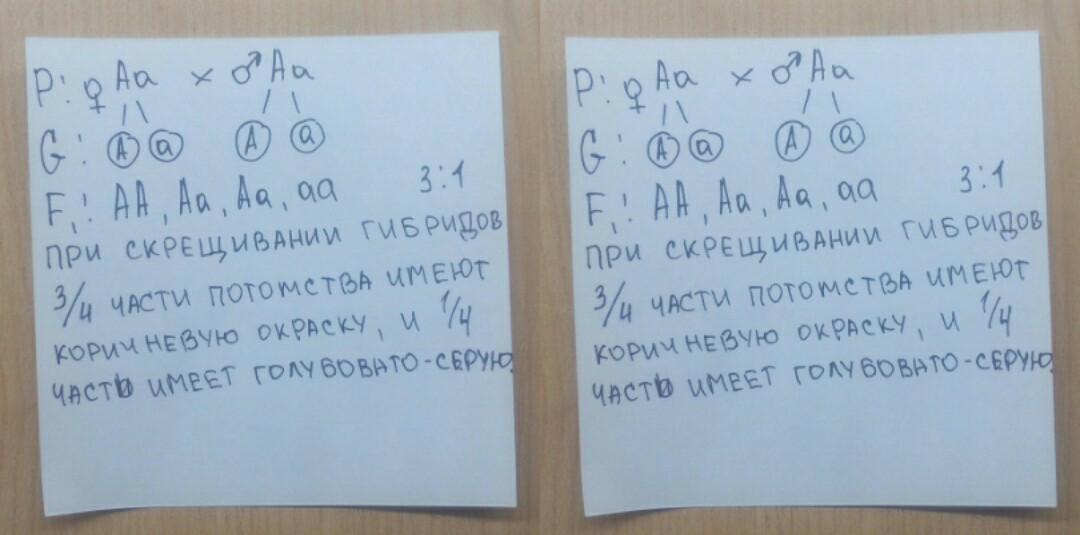 P: ♀ Aa × ♂ Aa
G: A a A a
F₁: AA, Aa, Aa, aa 3:1
ПРИ СКРЕЩИВАНИИ ГИБРИДОВ
3/4 ЧАСТИ ПОТОМСТВА ИМЕЮТ
КОРИЧНЕВУЮ ОКРАСКУ, И 1/4
ЧАСТЬ ИМЕЕТ ГОЛУБОВАТО-СЕРУЮ.
P: ♀ Aa × ♂ Aa
G: A a A a
F₁: AA, Aa, Aa, aa 3:1
ПРИ СКРЕЩИВАНИИ ГИБРИДОВ
3/4 ЧАСТИ ПОТОМСТВА ИМЕЮТ
КОРИЧНЕВУЮ ОКРАСКУ, И 1/4
ЧАСТЬ ИМЕЕТ ГОЛУБОВАТО-СЕРУЮ.